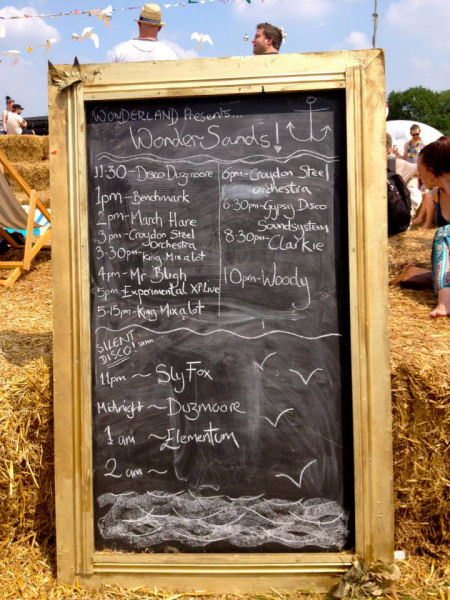 WONDERLAND Presents...
WonderSands!
11:30 - Disco Duzmoore
1pm - Benchmark
2pm - March Hare
3pm - Croydon Steel
Orchestra
3.30pm - King Mixalot
4pm - Mr Bligh
5pm - Experimental XPLive
5.15pm - King Mixalot
6pm - Croydon Steel
orchestra
6.30pm - Gypsy Disco
Soundsystem
8:30pm - Clarkie
10pm - Woody
SILENT
DISCO!
11pm ~ Sly Fox
Midnight ~ Duzmoore
1 am ~ Elementum
2 am ~